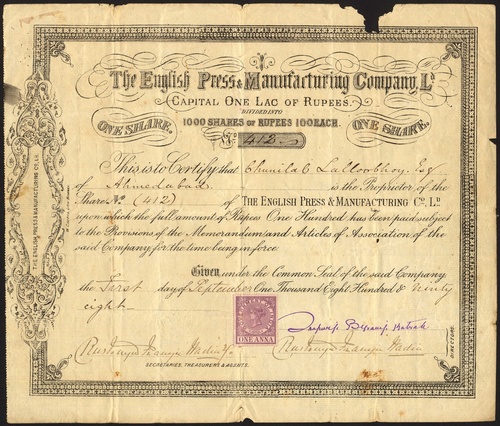 The English Press & Manufacturing Company, Ld
CAPITAL ONE LAC OF RUPEES.
DIVIDED INTO
1000 SHARES OF RUPEES 100 EACH.
ONE SHARE.
ONE SHARE.
No. 412.
This is to Certify that Chunilal Lalloobhoy Esq
of Ahmedabad is the Proprietor of the
Share No. (412) of THE ENGLISH PRESS & MANUFACTURING Co. Ld.
upon which the full amount of Rupees One Hundred has been paid subject
to the Provisions of the Memorandum and Articles of Association of the
said Company for the time being in force
Given under the Common Seal of the said Company
the First day of September One Thousand Eight Hundred & Ninety
eight
ONE ANNA
SECRETARIES, TREASURERS & AGENTS.
DIRECTORS.
THE ENGLISH PRESS & MANUFACTURING Co. Ld.